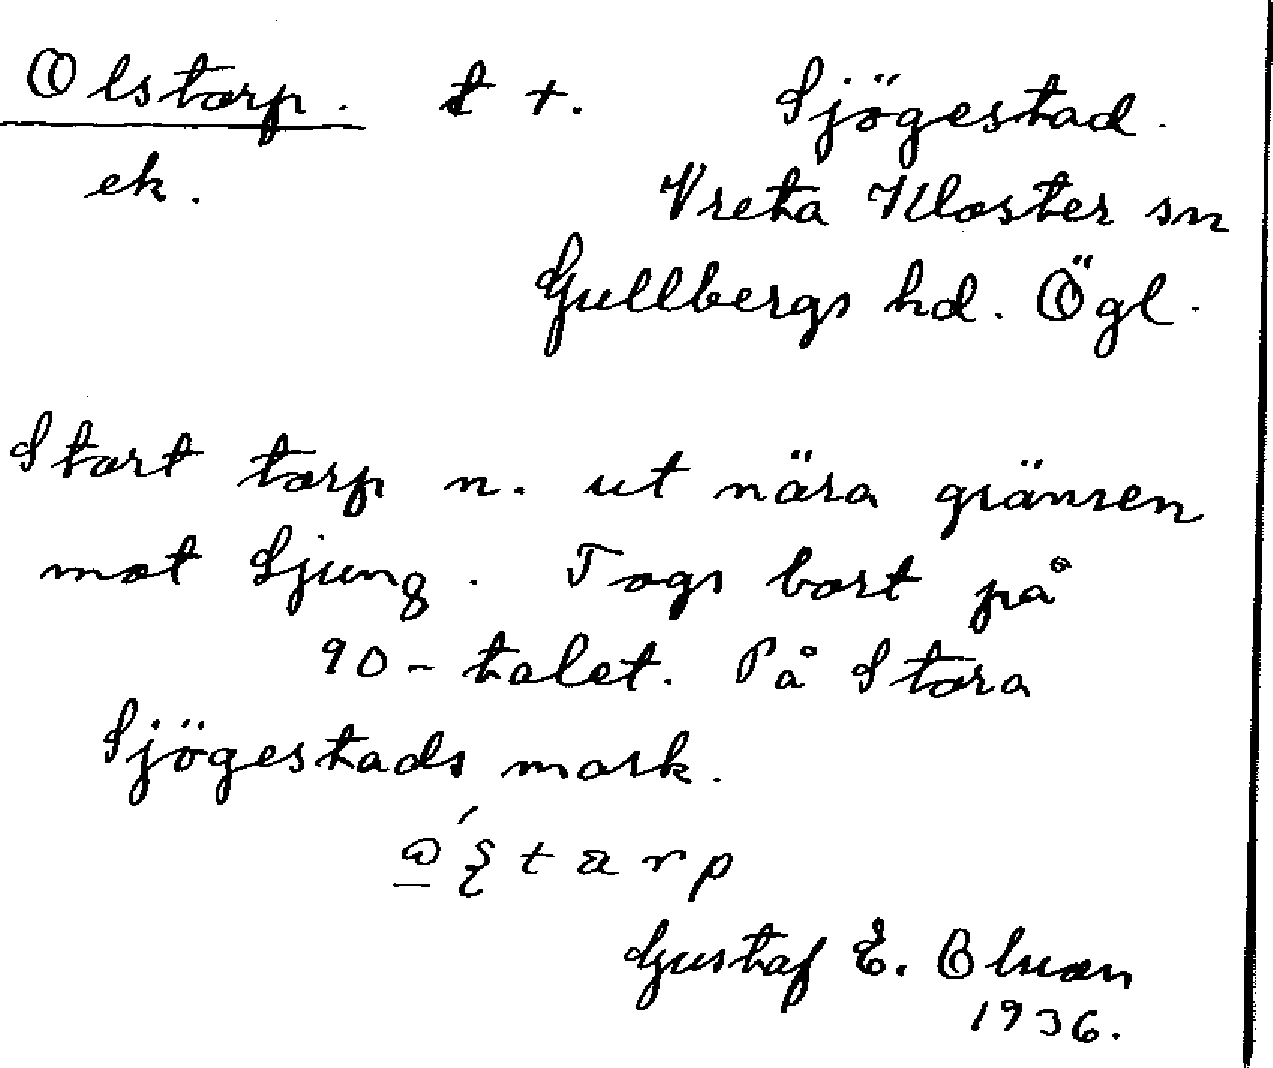 Olstorp. t +. Sjögestad.
ek. Vreta Kloster sn
Gullbergs hd. Ögl.
Stort torp n. ut nära gränsen
mot Ljung. Togs bort på
90-talet. På Stora
Sjögestads mark.
Gustaf E. Olson
1936.